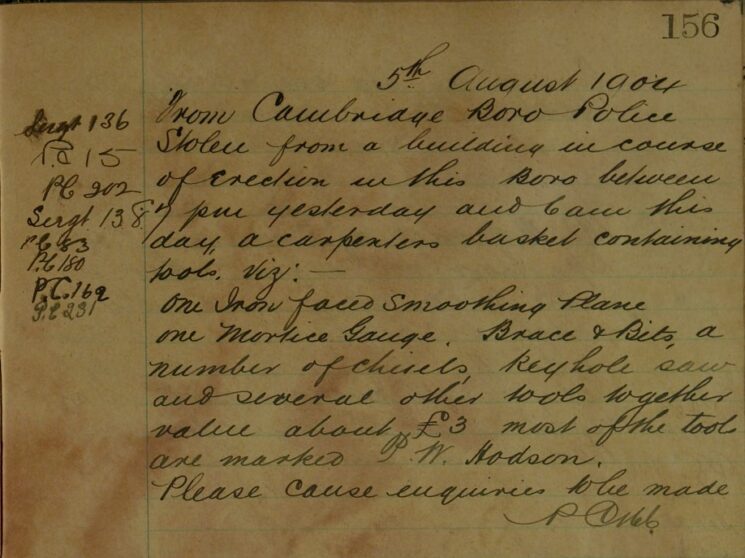 156
5th August 1904
From Cambridge Boro Police
Stolen from a building in course
of Erection in this Boro between
7 pm yesterday and 6 am this
day, a carpenters basket containing
tools. Viz: —
One Iron faced Smoothing Plane
one Mortice Gauge. Brace & Bits, a
number of chisels, keyhole saw
and several other tools together
value about £3 most of the tools
are marked P. W. Hodson.
Please cause enquiries to be made
Sergt 136
P.C 15
PC 202
Sergt. 138
P.C 53
P.C 180
P.C. 162
P.C 231